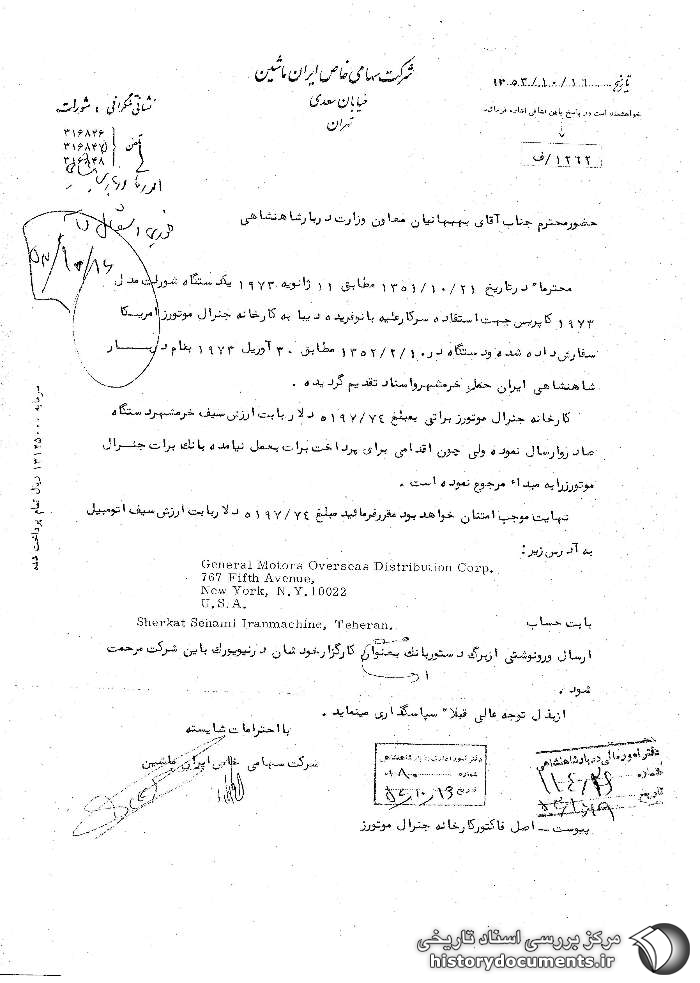 شرکت سهامی خاص ایران ماشین
خیابان سعدی
تهران
تاریخ ۱۳۵۳/۱۰/۱۶
خواهشمند است در پاسخ باین نشانی اشاره فرمائید
۱۲۶۲/ف
نشانی تلگرافی : شورلت
تلفن
۳۱۶۸۴۶
۳۱۶۸۴۷
۳۱۶۸۴۸
حضور محترم جناب آقای بهبهانیان معاون وزارت دربار شاهنشاهی
محترما" در تاریخ ۱۳۵۱/۱۰/۲۱ مطابق ۱۱ ژانویه ۱۹۷۳ یک ستگاه شورلت مدل
۱۹۷۳ کاپریس جهت استفاده سرکارعلیه بانو فریده دیبا به کارخانه جنرال موتورز امریکا
سفارش داده شده و دستگاه در ۱۳۵۲/۲/۱۰ مطابق ۳۰ آوریل ۱۹۷۳ بنام دربار
شاهنشاهی ایران حمل خرمشهر و اسناد تقدیم گردیده .
کارخانه جنرال موتورز براتی بمبلغ ۵۱۹۷/۷۴ دلار بابت ارزش سیف خرمشهر دستگاه
صادر و ارسال نموده ولی چون اقدامی برای پرداخت برات بعمل نیامده بانک برات جنرال
موتورز را به مبداء مرجوع نموده است .
نهایت موجب امتنان خواهد بود مقرر فرمائید مبلغ ۵۱۹۷/۷۴ دلار بابت ارزش سیف اتومبیل
به آدرس زیر :
General Motors Overseas Distribution Corp.
767 Fifth Avenue,
New York, N.Y.10022
U.S.A.
بابت حساب Sherkat Sehami Iranmachine, Teheran.
ارسال و رونوشتی از برگ دستور بانک بعنوان کارگزار خودشان در نیویورک باین شرکت مرحمت
شود .
از بذل توجه عالی قبلا" سپاسگذاری مینماید .
با احترامات شایسته
شرکت سهامی خاص ایران ماشین
شماره
تاریخ
دفتر امور مالی دربار شاهنشاهی
شماره
تاریخ
پیوست ـ اصل فاکتور کارخانه جنرال موتورز
ریال تمام پرداخت شده
مرکز بررسی اسناد تاریخی
historydocuments.ir